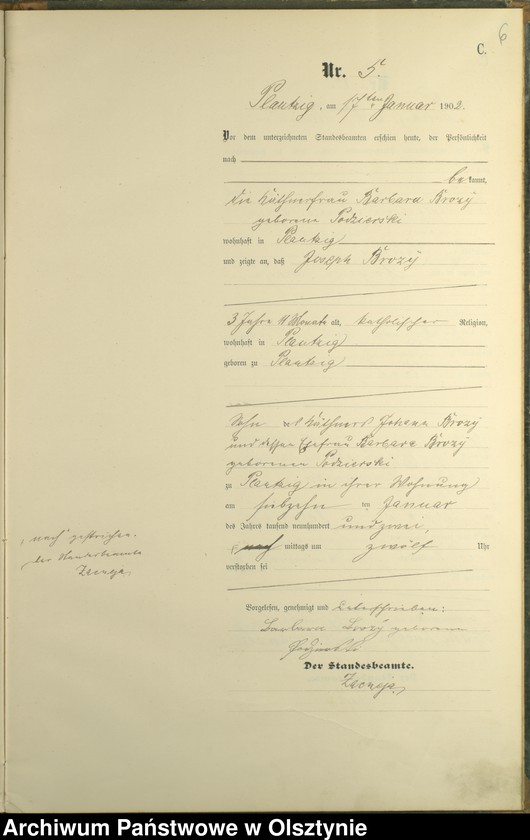 6
C.
Nr. 5.
Plautzig am 17ten Januar 1902.
Vor dem unterzeichneten Standesbeamten erschien heute, der Persönlichkeit
nach
be kannt,
die Käthnerfrau Barbara Brozy
geborene Podzierski
wohnhaft in Plautzig
und zeigte an, daß Joseph Brozy
3 Jahre 11 Monate alt, katholischer Religion,
wohnhaft in Plautzig
geboren zu Plautzig
Sohn des Käthners Johann Brozy
und dessen Ehefrau Barbara Brozy
geborenen Podzierski
zu Plautzig in ihrer Wohnung
am siebzehn ten Januar
des Jahres tausend neunhundert und zwei,
nach mittags um zwölf Uhr
verstorben sei
"nach" gestrichen.
der Standesbeamte
Vorgelesen, genehmigt und unterschrieben:
Barbara Brozy geborene
Der Standesbeamte.
Archiwum Państwowe w Olsztynie